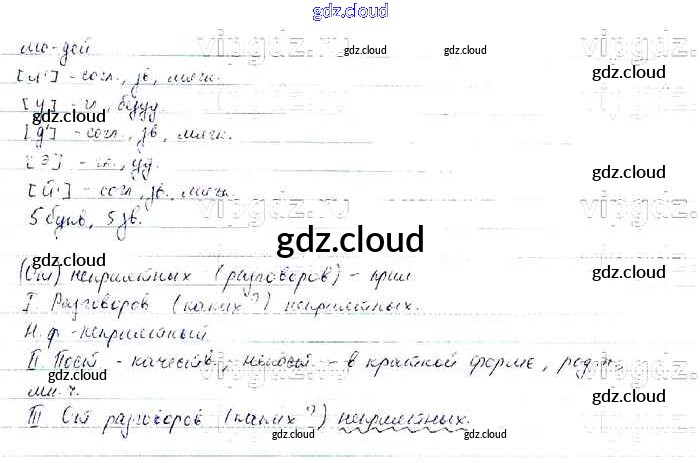 gdz.cloud
лю-дей
[л'] - согл., зв, мягк.
[у] - гл, безуд.
[д'] - согл., зв, мягк.
[э] - гл., уд.
[й'] - согл, зв. мягк.
5 букв, 5 зв.
(От) неприятных (разговоров) - прил.
I. Разговоров (каких?) неприятных.
Н.ф. - неприятный.
II Пост - качеств, - в краткой форме, род.п.,
мн.ч.
III От разговоров (каких?) неприятных.
gdz.cloud
gdz.cloud
gdz.cloud
gdz.cloud
gdz.cloud
gdz.cloud
gdz.cloud
gdz.cloud
gdz.cloud
gdz.cloud
gdz.cloud
vipgdz.ru
vipgdz.ru
vipgdz.ru